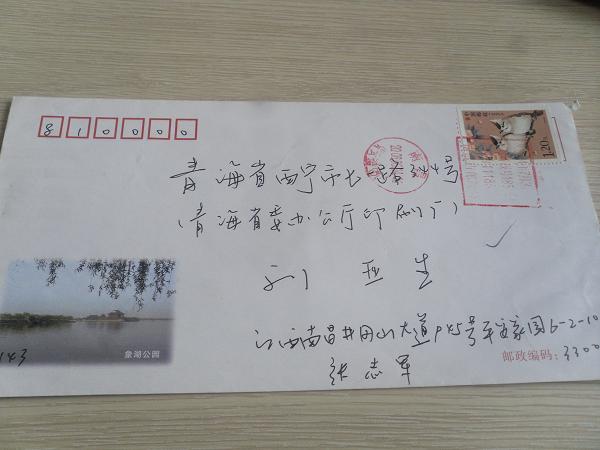 810000
1.20元
青海省西宁市长江路344号
(青海省委办公厅印刷厂)
刘 亚 生
江西南昌井冈山大道945号平安家园6-2-10
张志军
象湖公园
143
邮政编码:3300